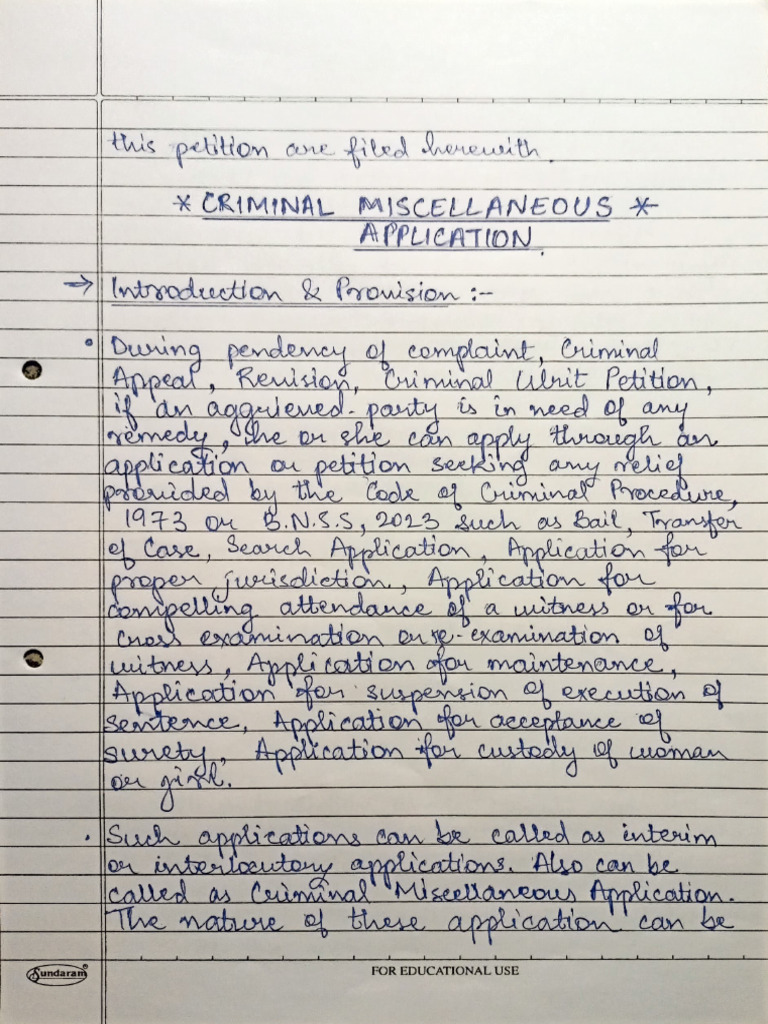 this petition are filed herewith.
* CRIMINAL MISCELLANEOUS *
APPLICATION.
→ Introduction & Provision :-
• During pendency of complaint, Criminal
Appeal, Revision, Criminal Writ Petition,
if an aggrieved party is in need of any
remedy, he or she can apply through an
application or petition seeking any relief
provided by the Code of Criminal Procedure,
1973 or B.N.S.S, 2023 such as Bail, Transfer
of Case, Search Application, Application for
proper jurisdiction, Application for
compelling attendance of a witness or for
cross examination or re-examination of
witness, Application for maintenance,
Application for suspension of execution of
sentence, Application for acceptance of
surety, Application for custody of woman
or girl.
• Such applications can be called as interim
or interlocutory applications. Also can be
called as Criminal Miscellaneous Application.
The nature of these application can be
Sundaram®
FOR EDUCATIONAL USE